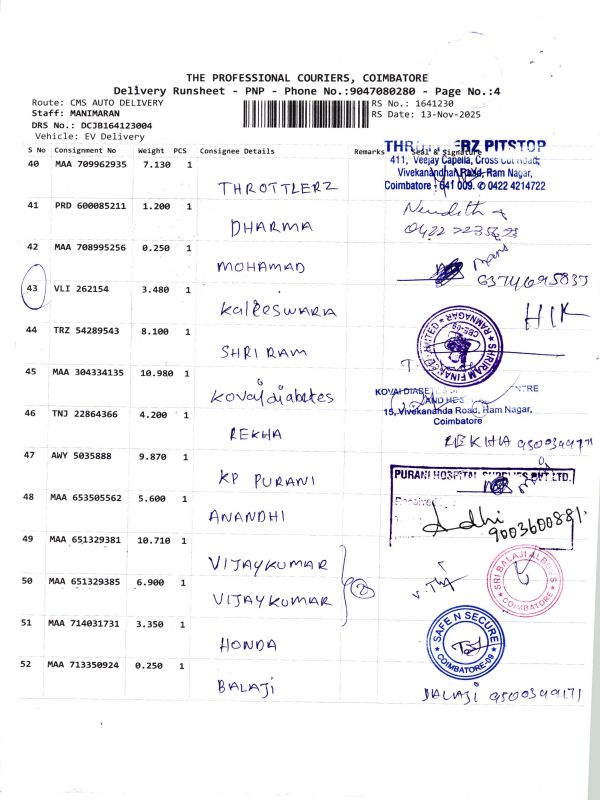 THE PROFESSIONAL COURIERS, COIMBATORE
Delivery Runsheet - PNP - Phone No.:9047080280 - Page No.:4
Route: CMS AUTO DELIVERY
RS No.: 1641230
Staff: MANIMARAN
RS Date: 13-Nov-2025
DRS No.: DCJB164123004
Vehicle: EV Delivery
S No Consignment No Weight PCS Consignee Details Remarks Seal & Signature
THROTTLERZ PITSTOP
411, Veejay Capella, Cross Cut Road,
Vivekanandha Road, Ram Nagar,
Coimbatore - 641 009. ✆ 0422 4214722
40 MAA 709962935 7.130 1 THROTTLERZ
41 PRD 600085211 1.200 1 DHARMA
42 MAA 708995256 0.250 1 MOHAMAD
43 VLI 262154 3.480 1 Kaleeswara
HIK
44 TRZ 54289543 8.100 1 SHRI RAM
SHRIRAM FINANCE LIMITED
RAMNAGAR
45 MAA 304334135 10.980 1 Kovai diabetes
KOVAI DIABETES
15, Vivekananda Road, Ram Nagar,
Coimbatore
46 TNJ 22864366 4.200 1 REKHA
REKHA
47 AWY 5035888 9.870 1 KP PURANI
PURANI HOSPITAL SUPPLIES PVT LTD.
48 MAA 653505562 5.600 1 ANANDHI
Received
Aadhi
9003600881
49 MAA 651329381 10.710 1 VIJAYKUMAR
50 MAA 651329385 6.900 1 VIJAYKUMAR
2
SRI BALAJI ALBUMS
COIMBATORE
51 MAA 714031731 3.350 1 HONDA
SAFE N SECURE
COIMBATORE-09
52 MAA 713350924 0.250 1 BALAJI
BALAJI 9500349171